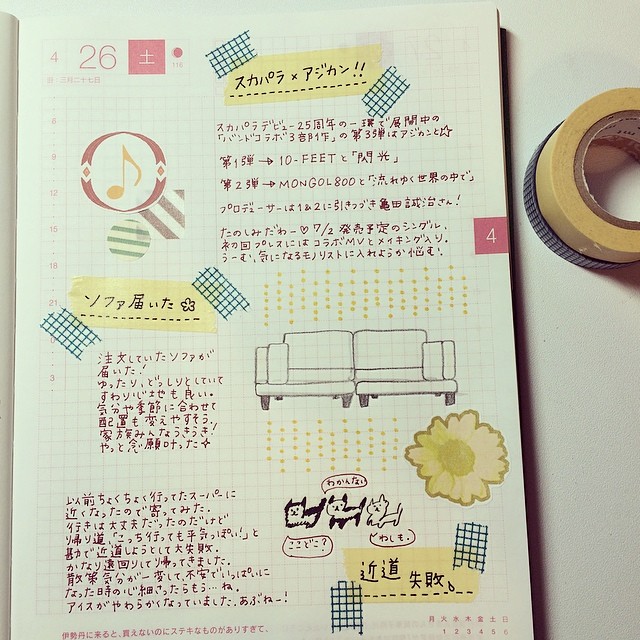 4 26 土
116
旧：三月二十七日
スカパラ×アジカン!!
スカパラデビュー25周年の一環で展開中の
「バンドコラボ3部作」の第3弾はアジカンと☆
第1弾→10-FEETと「閃光」
第2弾→MONGOL800と「流れゆく世界の中で」
プロデューサーは1&2に引きつづき亀田誠治さん!
たのしみだわー♡7/2発売予定のシングル。
初回プレスにはコラボMVとメイキング入り。
うーむ、気になるモノリストに入れようか悩む。
4
8
6
9
12
15
18
21
0
3
ソファ届いた
注文していたソファが
届いた!
ゆったり、どっしりとしていて
すわり心地も良い。
気分や季節に合わせて
配置も変えやすそう。
家族みんなうきうき!
やっと念願叶った☆
以前ちょくちょく行ってたスーパーに
近くなったので寄ってみた。
行きは大丈夫だったのだけど
帰り道、「こっち行っても平気っぽい!」と
勘で近道しようとして大失敗。
かなり遠回りして帰ってきました。
散策気分が一変して、不安でいっぱいに
なった時の心細さったらもう…ね。
アイスがやわらかくなっていました。あぶねー!
わかんない
ここどこ?
わしも。
近道失敗。
伊勢丹に来ると、買えないのにステキなものがありすぎて。
月火水木金土日
1 2 3 4 5 6